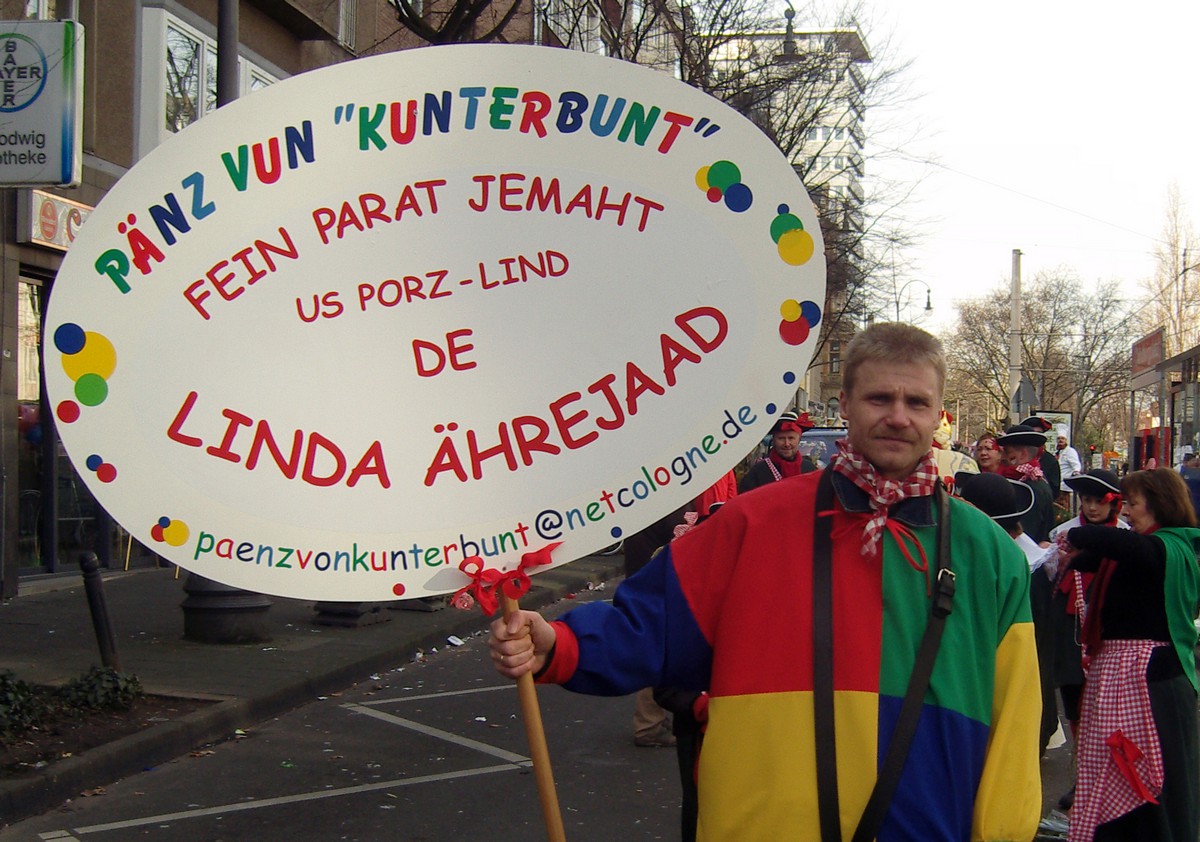 BAYER
BAYER
odwig
theke
PÄNZ VUN "KUNTERBUNT"
FEIN PARAT JEMAHT
US PORZ-LIND
DE
LINDA ÄHREJAAD
paenzvonkunterbunt@netcologne.de